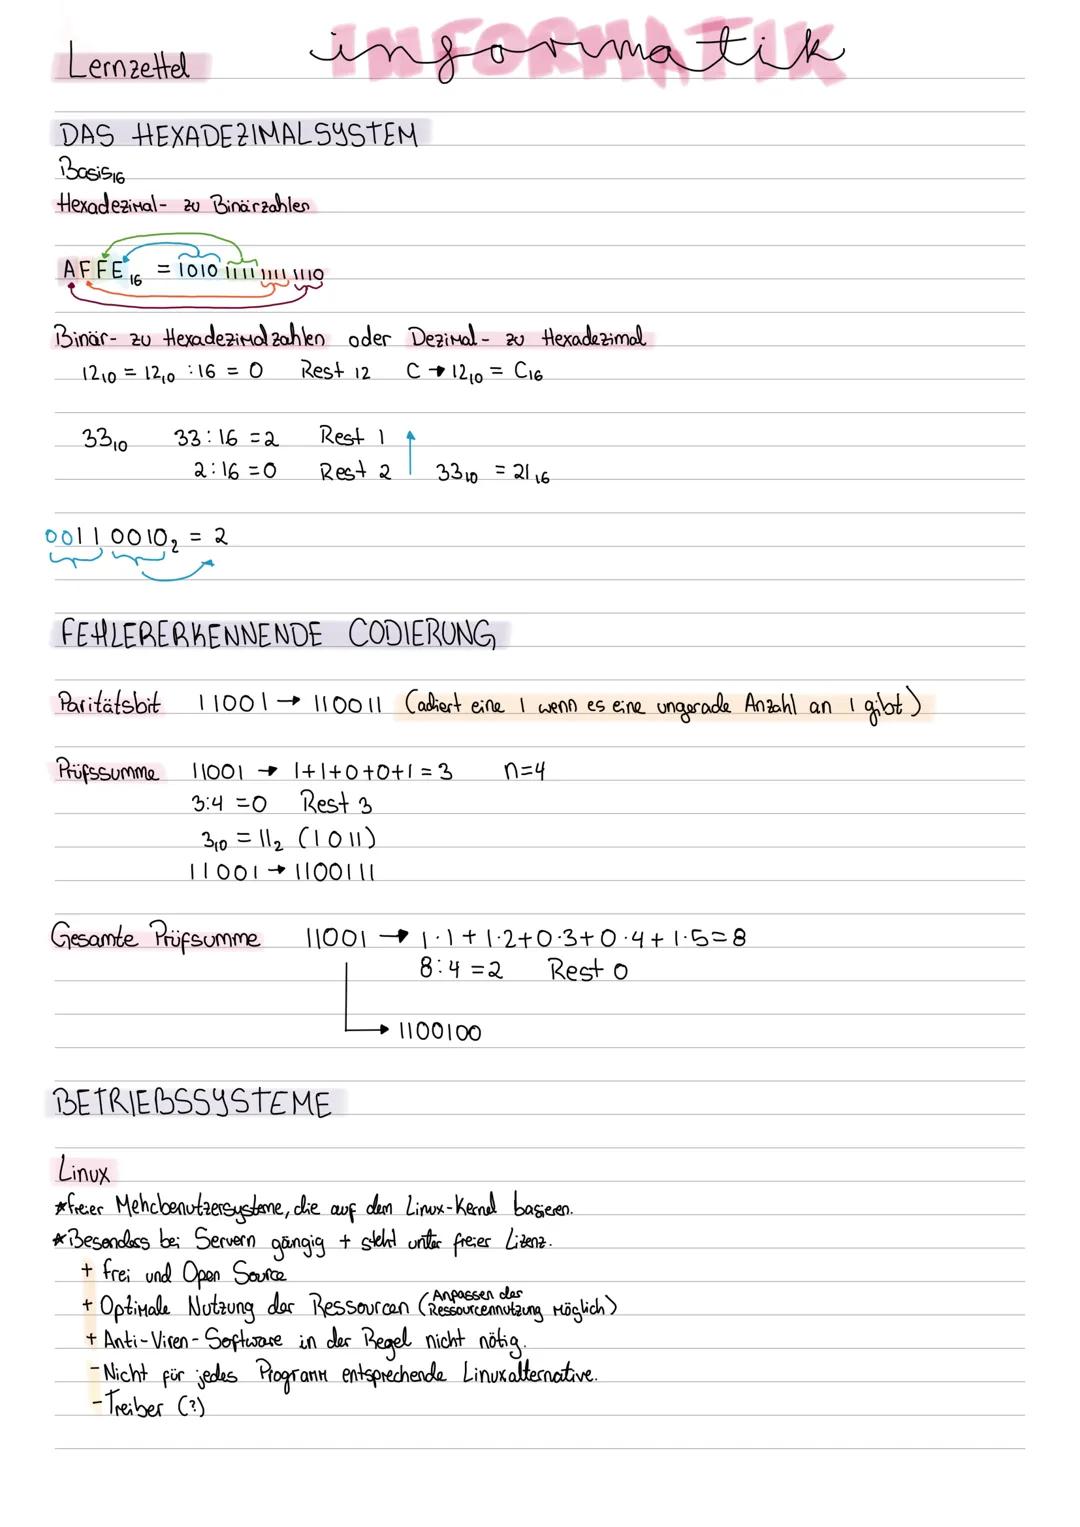 Lernzettel
INFORMATIK
informatik
DAS HEXADEZIMALSYSTEM
Basis₁₆
Hexadezimal- zu Binärzahlen
AFFE₁₆ = 1010 1111 1111 1110
Binär- zu Hexadezimalzahlen oder Dezimal- zu Hexadezimal
12₁₀ = 12₁₀ : 16 = 0 Rest 12 C → 12₁₀ = C₁₆
33₁₀ 33 : 16 = 2 Rest 1
2 : 16 = 0 Rest 2 33₁₀ = 21₁₆
0011 0010₂ = 2
FEHLERERKENNENDE CODIERUNG
Paritätsbit 11001 → 110011 (adiert eine 1 wenn es eine ungerade Anzahl an 1 gibt)
Prüfssumme 11001 → 1+1+0+0+1 = 3 n=4
3:4 = 0 Rest 3
3₁₀ = 11₂ (1011)
11001 → 1100111
Gesamte Prüfsumme 11001 → 1·1 + 1·2 + 0·3 + 0·4 + 1·5 = 8
8:4 = 2 Rest 0
→ 1100100
BETRIEBSSYSTEME
Linux
*freier Mehrbenutzersysteme, die auf dem Linux-Kernel basieren.
*Besonders bei Servern gängig + steht unter freier Lizenz.
+ frei und Open Source
+ Optimale Nutzung der Ressourcen (Anpassen der Ressourcennutzung möglich)
+ Anti-Viren-Software in der Regel nicht nötig.
- Nicht für jedes Programm entsprechende Linuxalternative.
- Treiber (?)